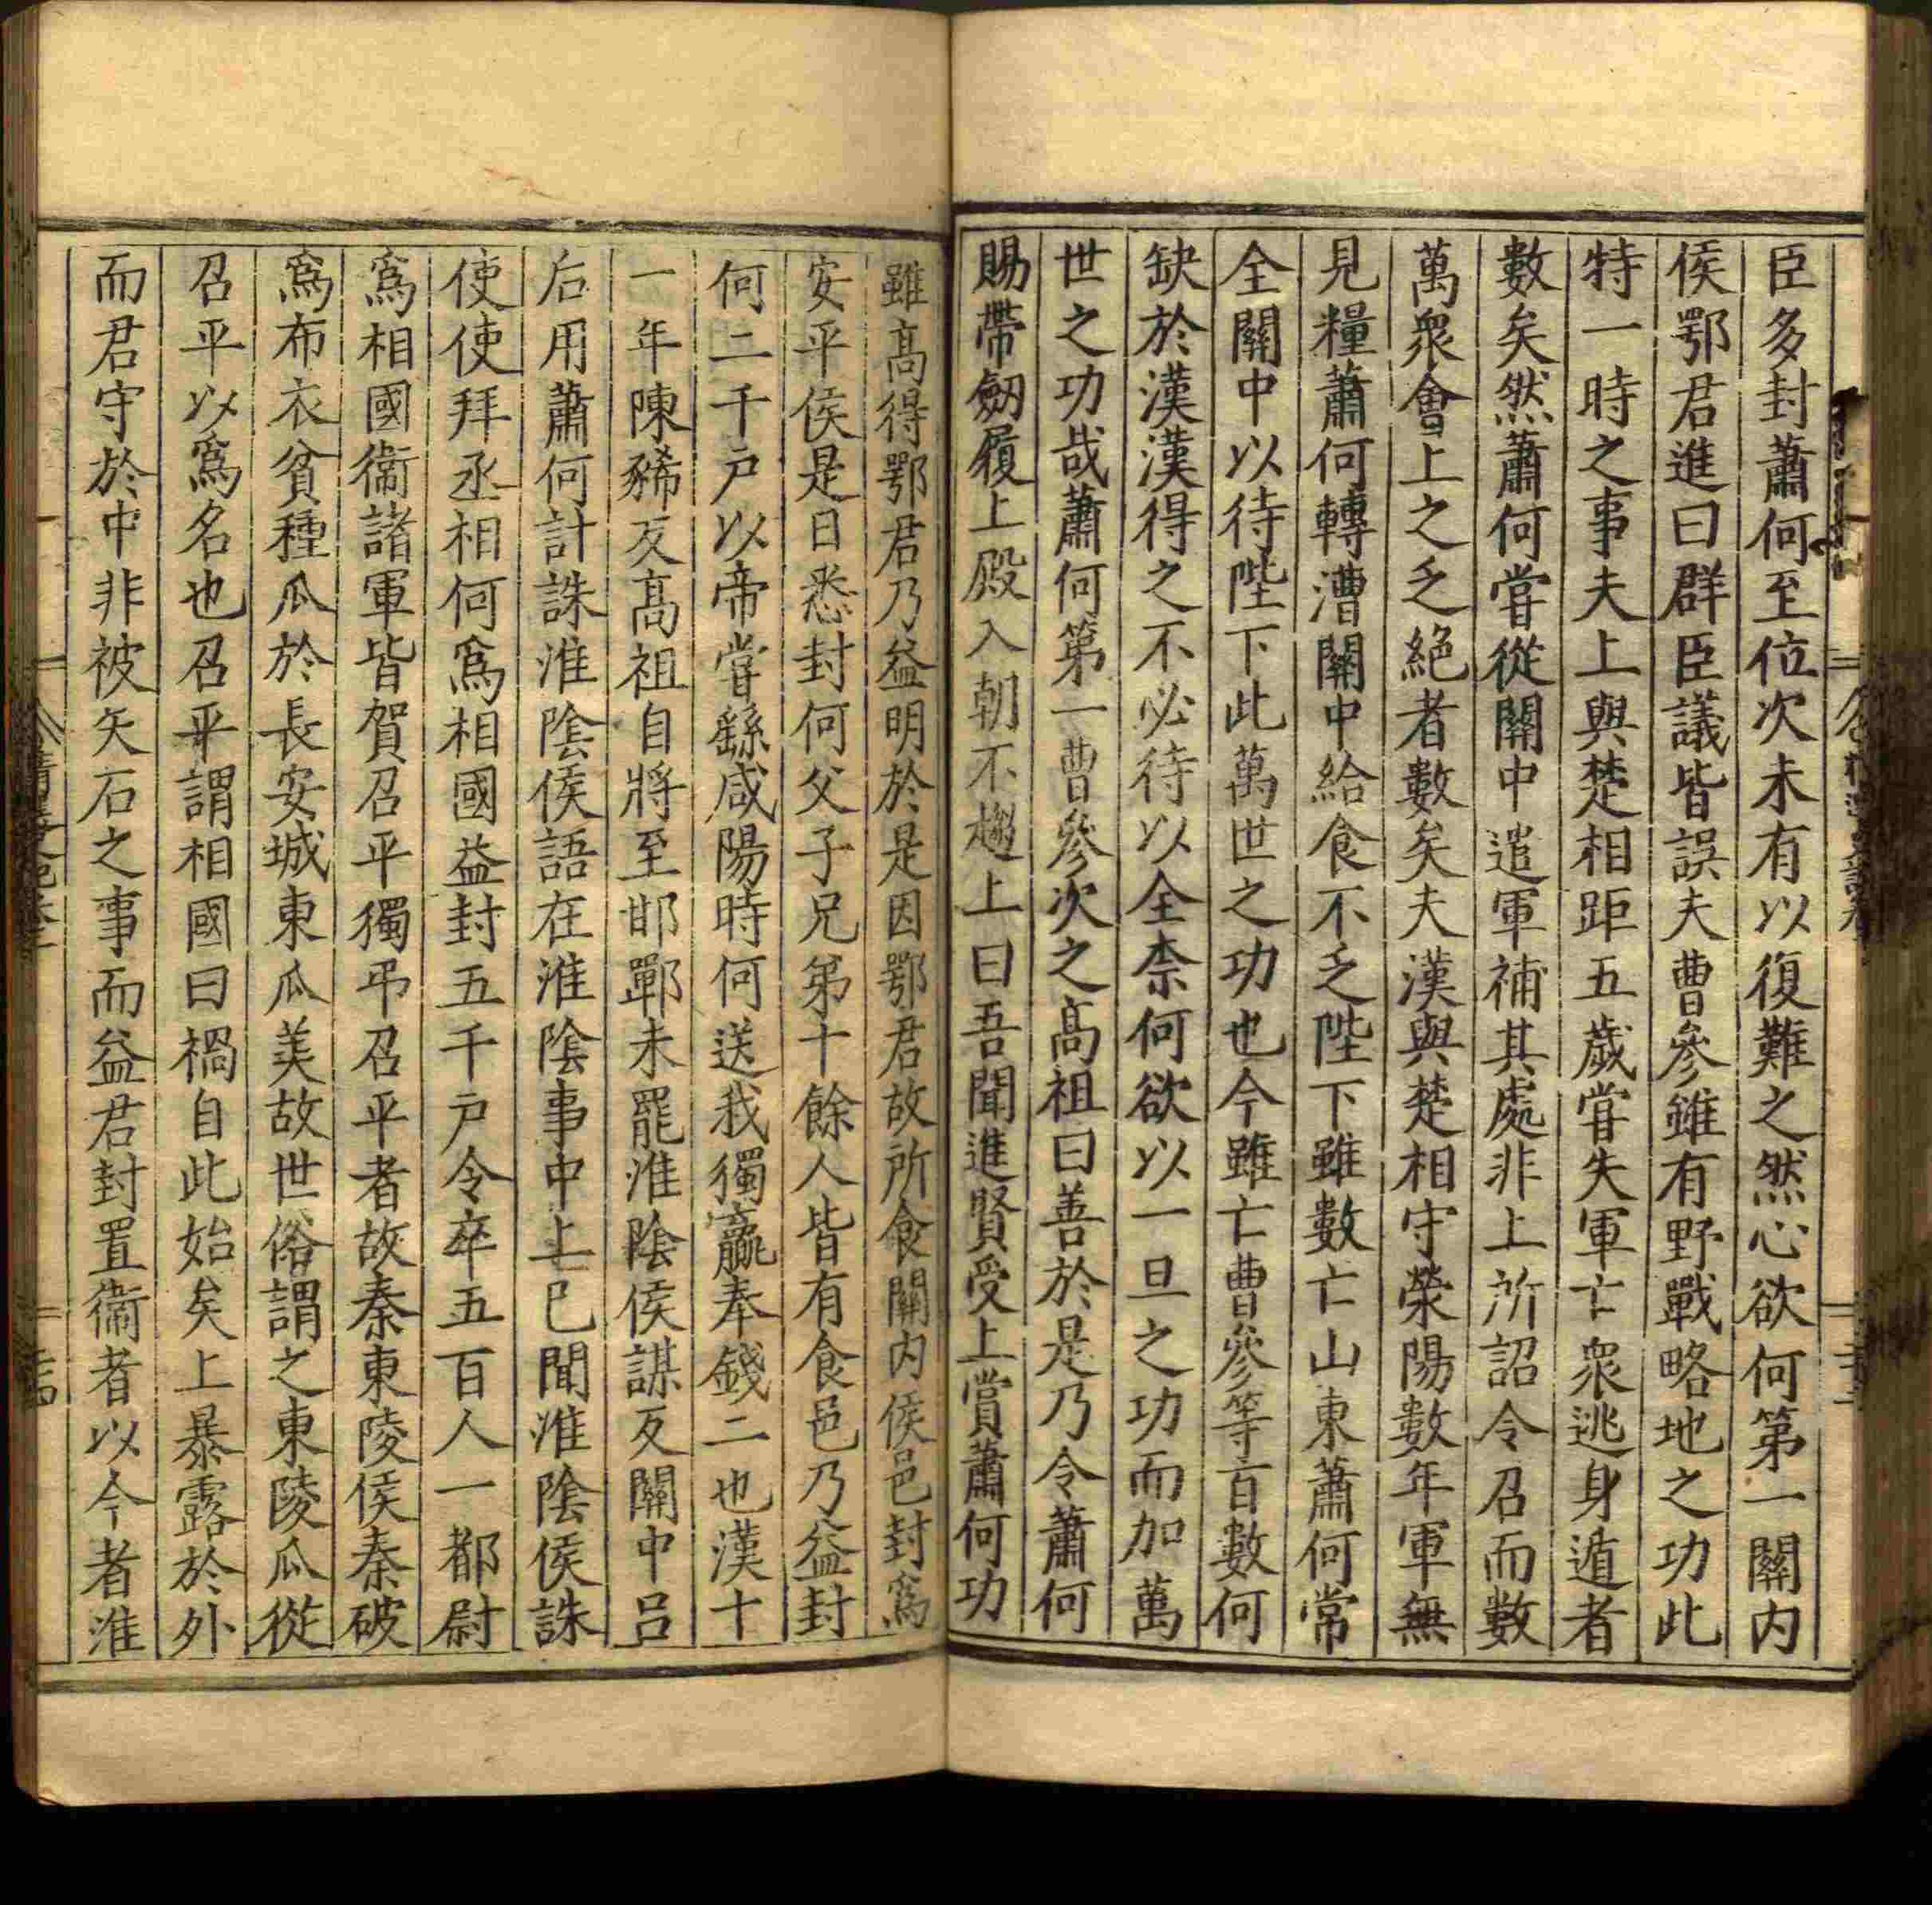 臣多封蕭何至位次未有以復難之然心欲何第一關内
侯鄂君進曰群臣議皆誤夫曹參雖有野戰略地之功此
特一時之事夫上與楚相距五歲甞失軍亡衆逃身遁者
數矣然蕭何甞從關中遣軍補其處非上所詔令召而數
萬衆會上之乏絕者數矣夫漢與楚相守滎陽數年軍無
見糧蕭何轉漕關中給食不乏陛下雖數亡山東蕭何常
全關中以待陛下此萬世之功也今雖亡曹參等百數何
缺於漢漢得之不必待以全柰何欲以一旦之功而加萬
世之功哉蕭何第一曹參次之高祖曰善於是乃令蕭何
賜帶劒履上殿入朝不趨上曰吾聞進賢受上賞蕭何功
雖高得鄂君乃益明於是因鄂君故所食關内侯邑封爲
安平侯是日悉封何父子兄弟十餘人皆有食邑乃益封
何二千户以帝甞繇咸陽時何送我獨贏奉錢二也漢十
一年陳豨反高祖自將至邯鄲未罷淮陰侯謀反關中吕
后用蕭何計誅淮陰侯語在淮陰事中上已聞淮陰侯誅
使使拜丞相何爲相國益封五千户令卒五百人一都尉
爲相國衞諸軍皆賀召平獨弔召平者故秦東陵侯秦破
爲布衣貧種瓜於長安城東瓜美故世俗謂之東陵瓜從
召平以爲名也召平謂相國曰禍自此始矣上暴露於外
而君守於中非被矢石之事而益君封置衞者以今者淮